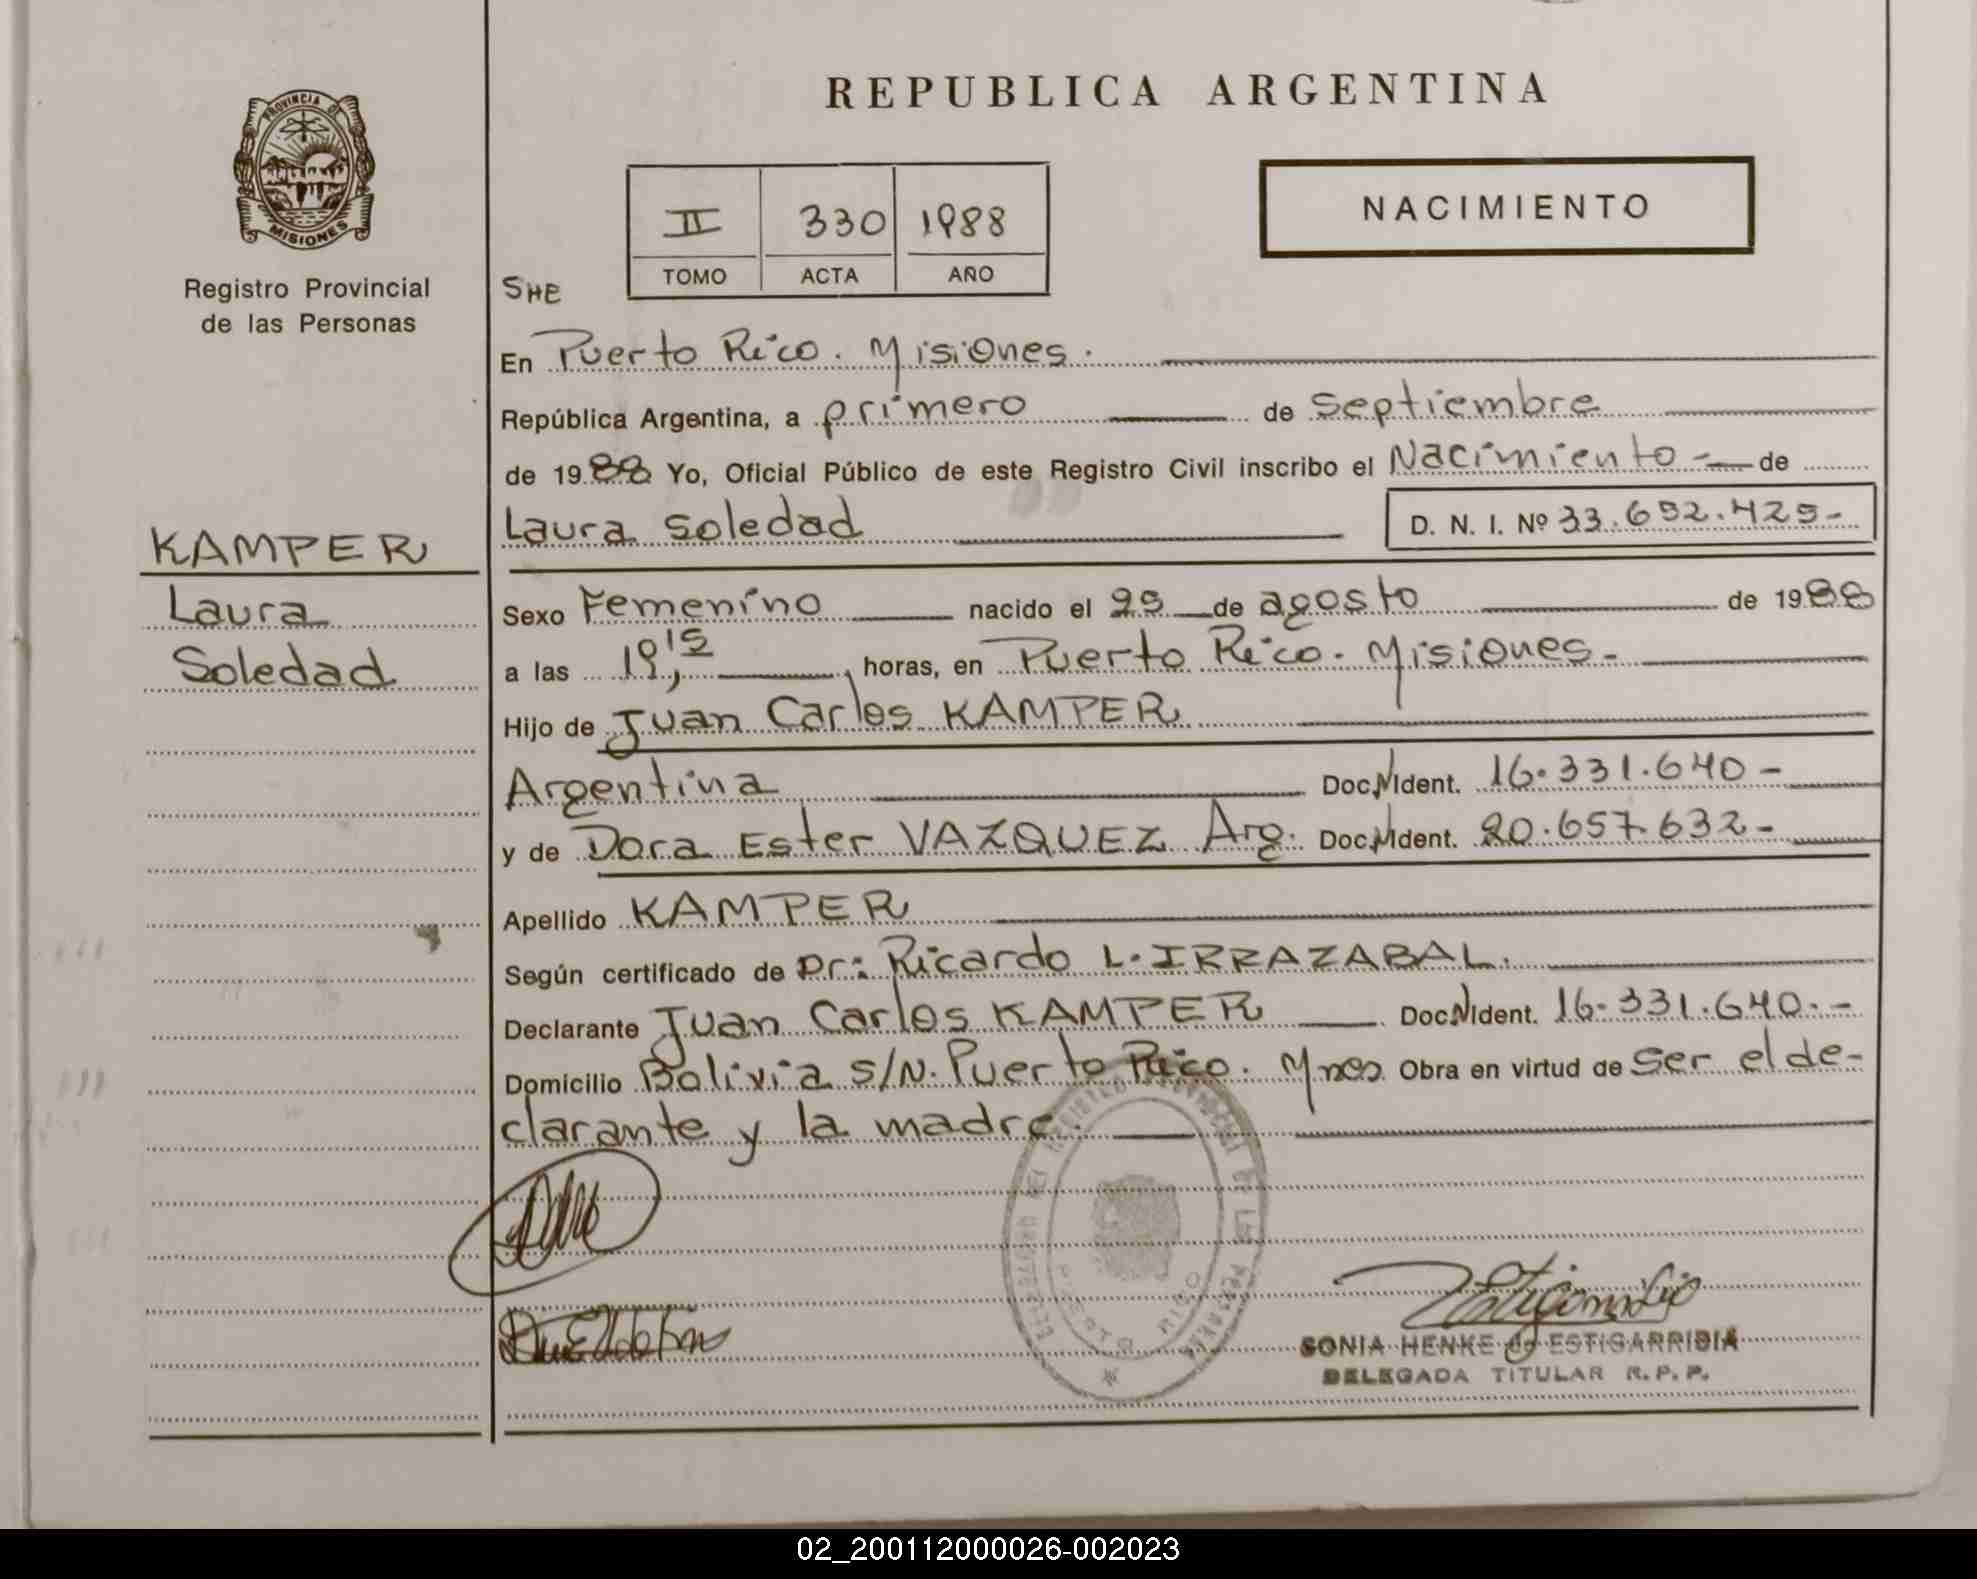 REPUBLICA ARGENTINA
PROVINCIA DE
MISIONES
Registro Provincial
de las Personas
II 330 1988
TOMO ACTA AÑO
NACIMIENTO
SHE
En Puerto Rico. Misiones.
República Argentina, a primero de septiembre
de 1988 Yo, Oficial Público de este Registro Civil inscribo el Nacimiento - de
Laura Soledad D. N. I. Nº 33.692.425-
KAMPER
Laura
Soledad
Sexo Femenino nacido el 29 de agosto de 1988
a las 19,15 horas, en Puerto Rico. Misiones-
Hijo de Juan Carlos KAMPER
Argentina Doc.N.Ident. 16.331.640-
y de Dora Ester VAZQUEZ Arg. Doc.N.Ident. 20.657.632-
Apellido KAMPER
Según certificado de Dr: Ricardo L. IRRAZABAL.
Declarante Juan Carlos KAMPER Doc.N.Ident. 16.331.640.-
Domicilio Bolivia s/N. Puerto Rico. Mnes Obra en virtud de ser el de-
clarante y la madre.
PUERTO RICO
SONIA HENKE de ESTIGARRIBIA
DELEGADA TITULAR R.P.P.
02_200112000026-002023